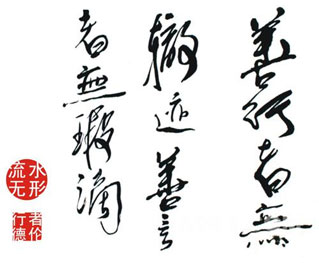 善行者無
轍迹善言
者無瑕謫
水形
流无
者伦
行德